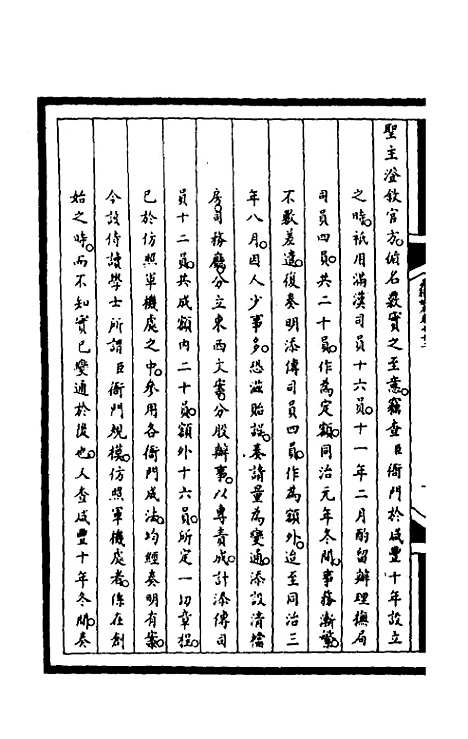 聖主澄敘官方循名覈實之至意竊查臣衙門於咸豐十年設立
之時祇用滿漢司員十六員十一年二月酌留辦理撫局
司員四員共二十員作為定額同治元年冬間事務漸繁
不敷差遣復奏明添傳司員四員作為額外迨至同治三
年八月因人少事多恐滋貽誤奏請量為變通添設清檔
房司務廳分立東西文案分股辦事以專責成計添傳司
員十二員共成額內二十員額外十六員所定一切章程
已於仿照軍機處之中參用各衙門成法均經奏明有案
今設侍讀學士所謂臣衙門規模仿照軍機處者係在創
始之時而不知實已變通於後也又查咸豐十年冬間奏